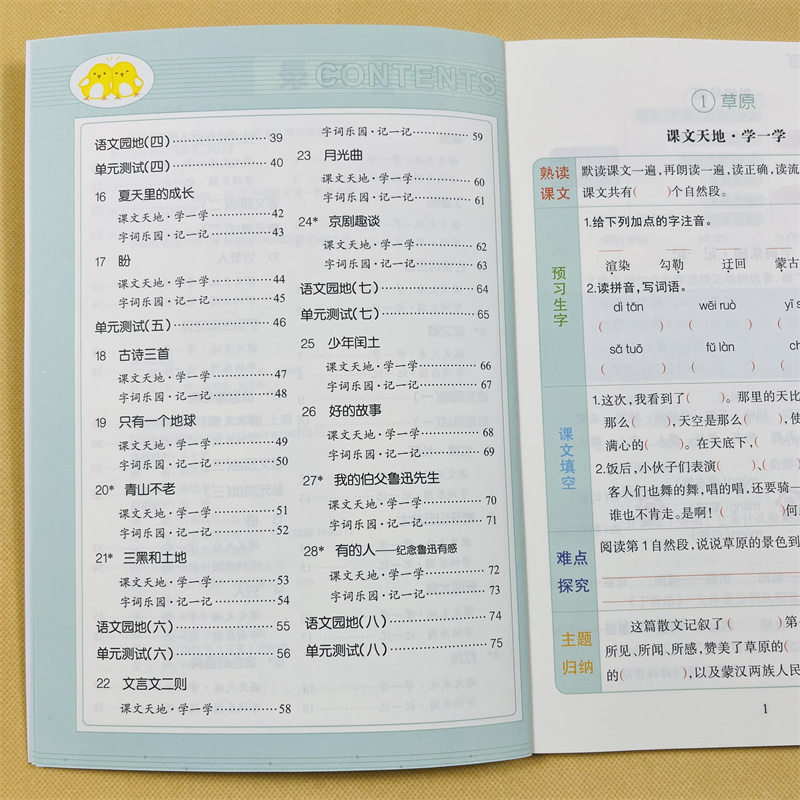 录 CONTENTS
语文园地(四)……………39
单元测试(四)……………40
16 夏天里的成长
课文天地·学一学……………42
字词乐园·记一记……………43
17 盼
课文天地·学一学……………44
字词乐园·记一记……………45
单元测试(五)……………46
18 古诗三首
课文天地·学一学……………47
字词乐园·记一记……………48
19 只有一个地球
课文天地·学一学……………49
字词乐园·记一记……………50
20* 青山不老
课文天地·学一学……………51
字词乐园·记一记……………52
21* 三黑和土地
课文天地·学一学……………53
字词乐园·记一记……………54
语文园地(六)……………55
单元测试(六)……………56
22 文言文二则
课文天地·学一学……………58
字词乐园·记一记……………59
23 月光曲
课文天地·学一学……………60
字词乐园·记一记……………61
24* 京剧趣谈
课文天地·学一学……………62
字词乐园·记一记……………63
语文园地(七)……………64
单元测试(七)……………65
25 少年闰土
课文天地·学一学……………66
字词乐园·记一记……………67
26 好的故事
课文天地·学一学……………68
字词乐园·记一记……………69
27* 我的伯父鲁迅先生
课文天地·学一学……………70
字词乐园·记一记……………71
28* 有的人——纪念鲁迅有感
课文天地·学一学……………72
字词乐园·记一记……………73
语文园地(八)……………74
单元测试(八)……………75
① 草原
课文天地·学一学
熟读课文
默读课文一遍,再朗读一遍,读正确,读流
课文共有( )个自然段。
预习生字
1.给下列加点的字注音。
渲染 勾勒 迂回 蒙古
2.读拼音,写词语。
dì tǎn wēi ruò yī s
( ) ( ) (
sǎ tuō fǔ làn ch
( ) ( ) (
课文填空
1.这次,我看到了( )。那里的天比
那么( ),天空是那么( ),使
满心的( )。在天底下,(
2.饭后,小伙子们表演( )、(
客人们也舞的舞,唱的唱,还要骑一
谁也不肯走。是啊!( )何
难点探究
阅读第1自然段,说说草原的景色到
主题归纳
这篇散文记叙了( )第
所见、所闻、所感,赞美了草原的(
的( ),以及蒙汉两族人民
1